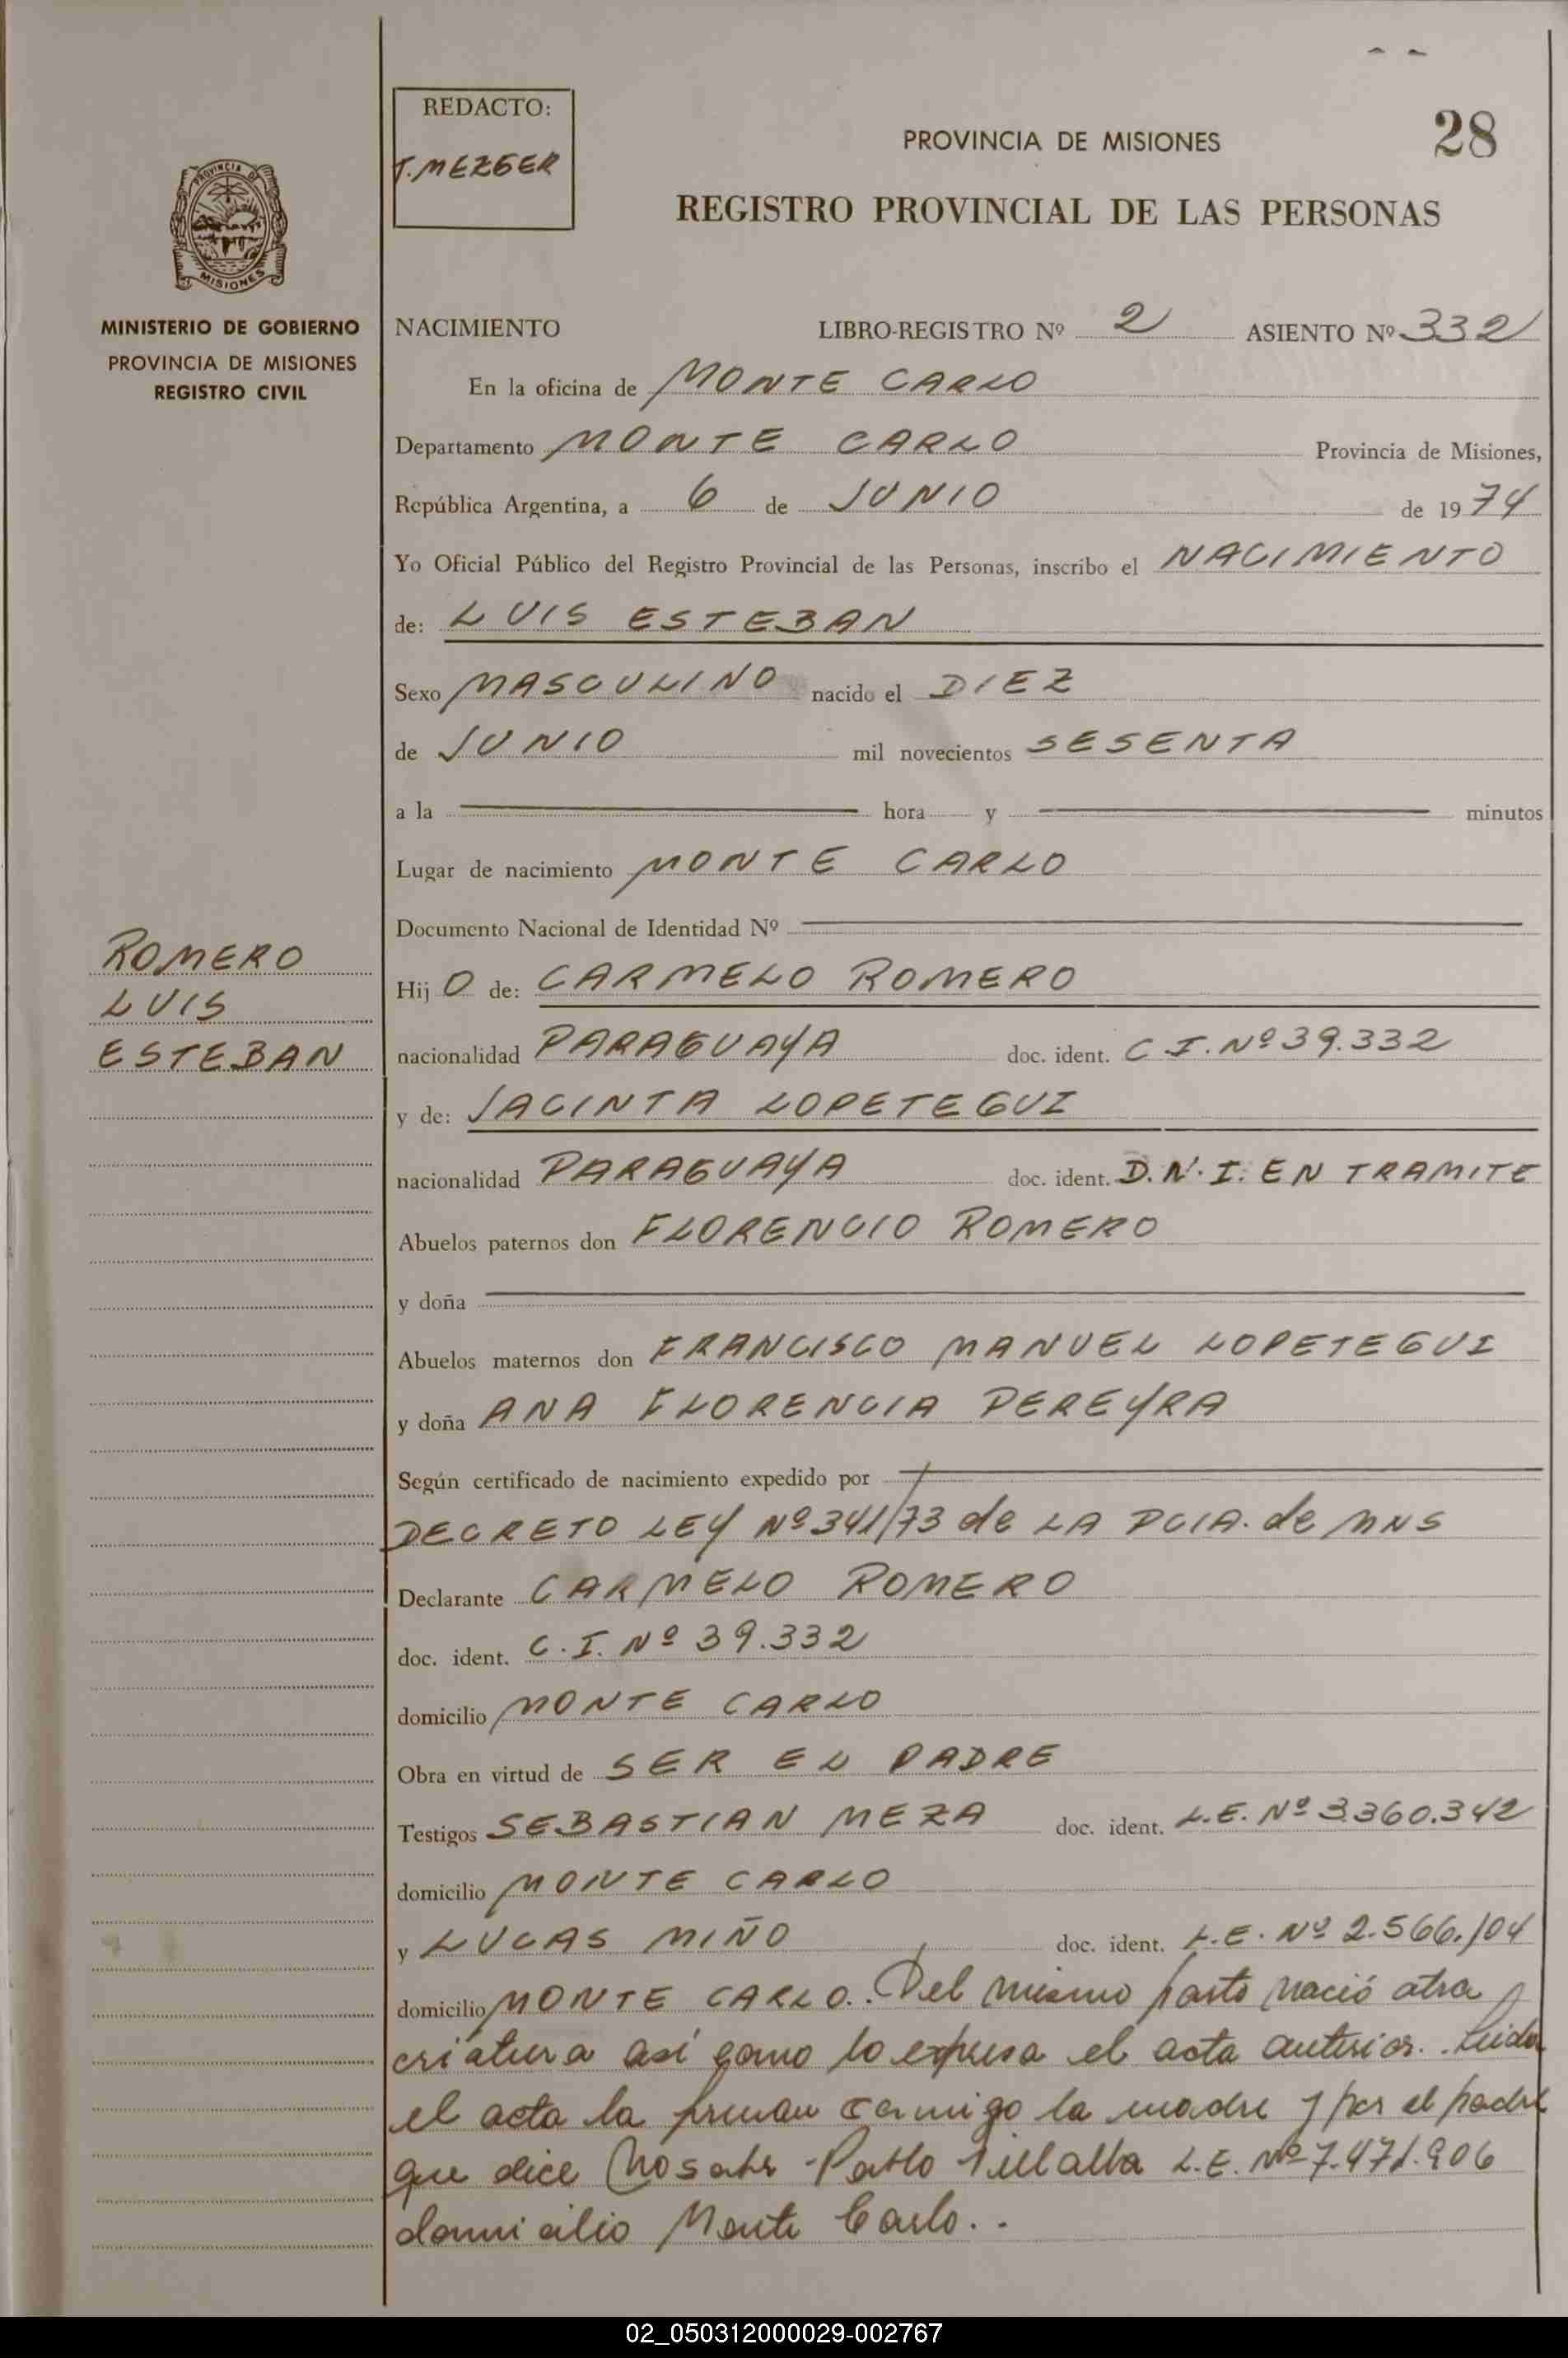 REDACTO:
T. MEZGER
PROVINCIA DE MISIONES
28
REGISTRO PROVINCIAL DE LAS PERSONAS
PROVINCIA DE
MISIONES
MINISTERIO DE GOBIERNO
PROVINCIA DE MISIONES
REGISTRO CIVIL
NACIMIENTO LIBRO-REGISTRO Nº 2 ASIENTO Nº 332
En la oficina de MONTE CARLO
Departamento MONTE CARLO Provincia de Misiones,
República Argentina, a 6 de JUNIO de 1974
Yo Oficial Público del Registro Provincial de las Personas, inscribo el NACIMIENTO
de: LUIS ESTEBAN
Sexo MASCULINO nacido el DIEZ
de JUNIO mil novecientos SESENTA
a la hora y minutos
Lugar de nacimiento MONTE CARLO
Documento Nacional de Identidad Nº
ROMERO
LUIS
ESTEBAN
Hij O de: CARMELO ROMERO
nacionalidad PARAGUAYA doc. ident. C.I. Nº 39.332
y de: JACINTA LOPETEGUI
nacionalidad PARAGUAYA doc. ident. D.N.I. EN TRAMITE
Abuelos paternos don FLORENCIO ROMERO
y doña
Abuelos maternos don FRANCISCO MANUEL LOPETEGUI
y doña ANA FLORENCIA PEREYRA
Según certificado de nacimiento expedido por
DECRETO LEY Nº 341/73 de LA PCIA. de MNS
Declarante CARMELO ROMERO
doc. ident. C.I. Nº 39.332
domicilio MONTE CARLO
Obra en virtud de SER EL PADRE
Testigos SEBASTIAN MEZA doc. ident. L.E. Nº 3.360.342
domicilio MONTE CARLO
y LUCAS MIÑO doc. ident. L.E. Nº 2.566.104
domicilio MONTE CARLO.. Del mismo parto nació otra
criatura así como lo expresa el acta anterior.. Leida
el acta la firman conmigo la madre y por el padre
que dice no saber Pablo Villalba L.E. Nº 7.471.906
domicilio Monte Carlo..
02_050312000029-002767